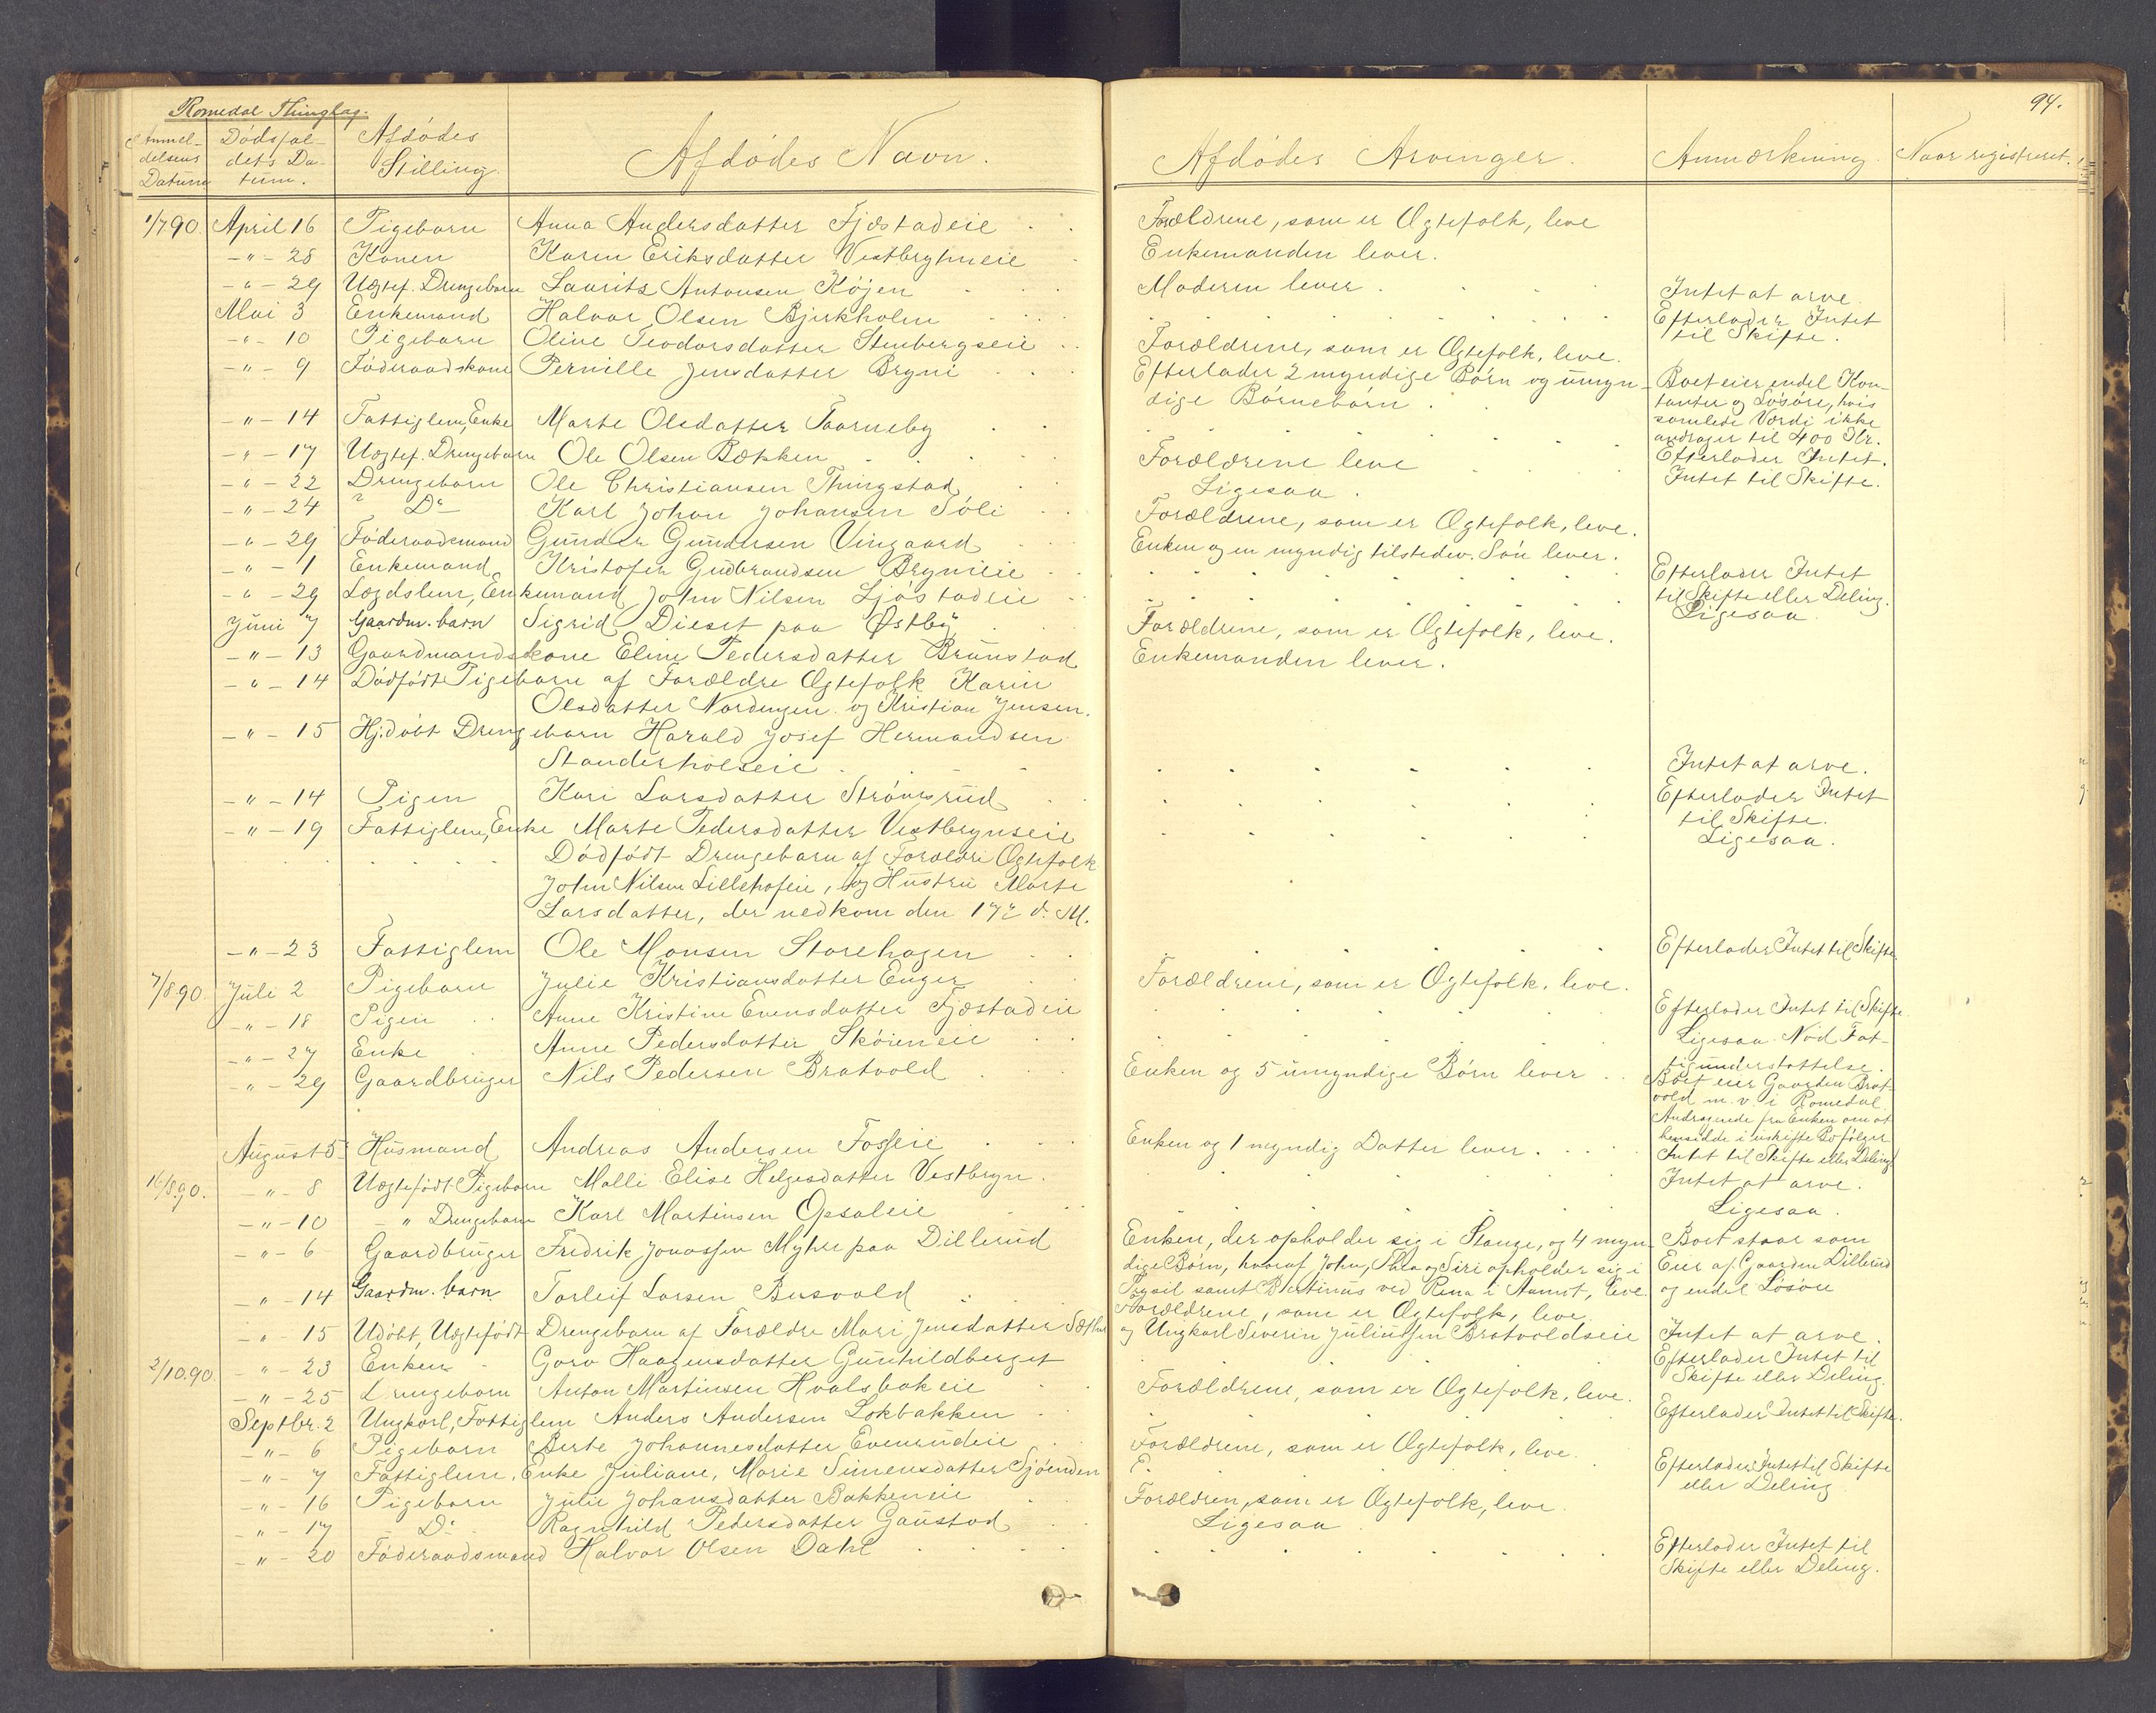 Romedal Thinglag.
Anmel-
delsens
Datum
Dødsfal-
dets Da-
tum.
Afdødes
Stilling
Afdødes Navn.
1/7 90 April 16 Pigebarn Anna Andersdatter Fjæstadeie
-"- 28 Konen Karen Eriksdatter Vestbrynseie
-"- 29 Uægtef. Drengebarn Laurits Antonsen Køjen
Mai 3 Enkemand Halvor Olsen Bjerkholen
-"- 10 Pigebarn Oline Teodorsdatter Stenbergseie
-"- 9 Føderaadskone Pernille Jensdatter Bryni
-"- 14 Fattiglem, Enke Marte Olsdatter Taarneby
-"- 17 Uægtef. Drengebarn Ole Olsen Bækken
-"- 22 Drengebarn Ole Christiansen Thingstad
-"- 24 Do Karl Johan Johansen Søli
-"- 29 Føderaadsmand Gunder Gundersen Vingaard
-"- 1 Enkemand Kristofer Gudbrandsen Brynieie
-"- 29 Lægdslem, Enkemand John Nilsen Ljøstadeie
Juni 7 Gaardm. barn Sigrid Dieset paa Østby
-"- 13 Gaardmandskone Eline Pedersdatter Brunstad
-"- 14 Dødfødt Pigebarn af Forældre Ægtefolk Karin
Olsdatter Nordengen og Kristian Jensen.
-"- 15 Hj.døbt Drengebarn Harald Josef Hermandsen
Standerholseie
-"- 14 Pigen Kari Larsdatter Strømsrud
-"- 19 Fattiglem, Enke Marte Pedersdatter Vestbrynseie
Dødfødt Drengebarn af Forældre Ægtefolk
John Nilsen Lillehofeie, og Hustru Marte
Larsdatter, der nedkom den 17de d. M.
-"- 23 Fattiglem Ole Monsen Storehagen
7/8 90 Juli 2 Pigebarn Julie Kristiansdatter Enger
-"- 18 Pigen Anne Kristine Evensdatter Fjæstadeie
-"- 27 Enke Anne Pedersdatter Skøieneie
-"- 29 Gaardbruger Nils Pedersen Bratvold
August 5 Husmand Andreas Andersen Fosseie
16/8 90. -"- 8 Uægtefødt Pigebarn Malli Elise Helgesdatter Vestbryn.
-"- 10 -"- Drengebarn Karl Martinsen Opsaleie
-"- 6 Gaardbruger Fredrik Jonassen Myhre paa Dillerud
-"- 14 Gaardm. barn Torleif Larsen Busvold
-"- 15 Udøbt, Uægtefødt Drengebarn af Forældre Mari Jensdatter Sæther
2/10 90 -"- 23 Enken Goro Haagensdatter Gunhildberget
-"- 25 Drengebarn Anton Martinsen Hvalsbakeie
Septbr. 2 Ungkarl, Fattiglem Anders Andersen Lokbakken
-"- 6 Pigebarn Berte Johannesdatter Evenrudeie
-"- 7 Fattiglem, Enke Juliane, Marie Simensdatter Sjøenden
-"- 16 Pigebarn Julie Johansdatter Bakkeneie
-"- 17 Do Ragnhild Pedersdatter Gaustad
-"- 20 Føderaadsmand Halvor Olsen Dahl
94.
Afdødes Arvinger. Anmærkning. Naar registreret.
Forældrene, som er Ægtefolk, leve
Enkemanden lever.
Moderen lever
Intet at arve.
Efterlader Intet
til Skifte.
Forældrene, som er Ægtefolk, leve.
Efterlader 2 myndige Børn og umyn-
dige Børnebørn
Boet eier endel Kon-
tanter og Løsøre, hvis
samlede Værdi ikke
andrager til 400 Kr.
Efterlader Intet.
Forældrene leve
Intet til Skifte.
Ligesaa.
Forældrene, som er Ægtefolk, leve.
Enken og en myndig tilstedev. Søn lever.
Efterlader Intet
til Skifte eller Deling.
Ligesaa
Forældrene, som er Ægtefolk, leve.
Enkemanden lever.
Intet at arve.
Efterlader Intet
til Skifte.
Ligesaa.
Efterlader Intet til Skifte.
Forældrene, som er Ægtefolk, leve.
Efterlader Intet til Skifte.
Ligesaa. Nød Fat-
tigunderstøttelse.
Enken og 5 umyndige Børn lever
Boet eier Gaarden Brat-
vold m. v. i Romedal.
Andragende fra Enken om at
hensidde i uskifte Bo følger
Enken og 1 myndig Datter lever.
Intet til Skifte eller Deling.
Intet at arve.
Ligesaa.
Enken, der opholder sig i Stange, og 4 myn-
dige Børn, hvoraf John, Thea og Siri opholder sig i
Trysil samt Martinus ved Rena i Aamot, leve.
Boet staar som
Eier af Gaarden Dillerud
og endel Løsøre
Forældrene, som er Ægtefolk, leve.
og Ungkarl Severin Juliussen Bratvoldseie
Intet at arve.
Efterlader Intet til
Skifte eller Deling.
Forældrene, som er Ægtefolk, leve.
Efterlader Intet til Skifte.
Forældrene, som er Ægtefolk, leve.
Efterlader Intet til Skifte
eller Deling
Forældren, som er Ægtefolk, leve.
Ligesaa
Efterlader Intet til
Skifte eller Deling.